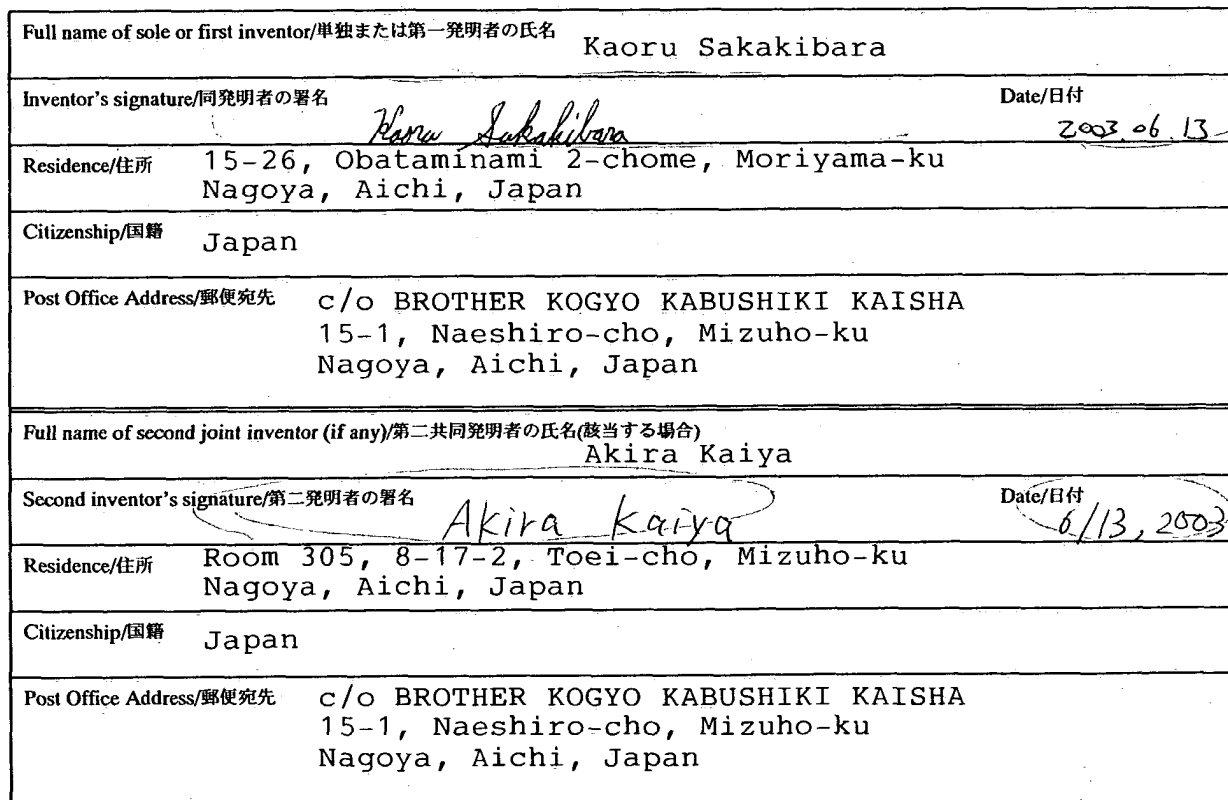 Full name of sole or first inventor/単独または第一発明者の氏名 Kaoru Sakakibara
Inventor's signature/同発明者の署名 Kaoru Sakakibara Date/日付 2003.06.13
Residence/住所 15-26, Obataminami 2-chome, Moriyama-ku
Nagoya, Aichi, Japan
Citizenship/国籍 Japan
Post Office Address/郵便宛先 c/o BROTHER KOGYO KABUSHIKI KAISHA
15-1, Naeshiro-cho, Mizuho-ku
Nagoya, Aichi, Japan
Full name of second joint inventor (if any)/第二共同発明者の氏名(該当する場合)
Akira Kaiya
Second inventor's signature/第二発明者の署名 Akira Kaiya Date/日付 6/13, 2003
Residence/住所 Room 305, 8-17-2, Toei-cho, Mizuho-ku
Nagoya, Aichi, Japan
Citizenship/国籍 Japan
Post Office Address/郵便宛先 c/o BROTHER KOGYO KABUSHIKI KAISHA
15-1, Naeshiro-cho, Mizuho-ku
Nagoya, Aichi, Japan